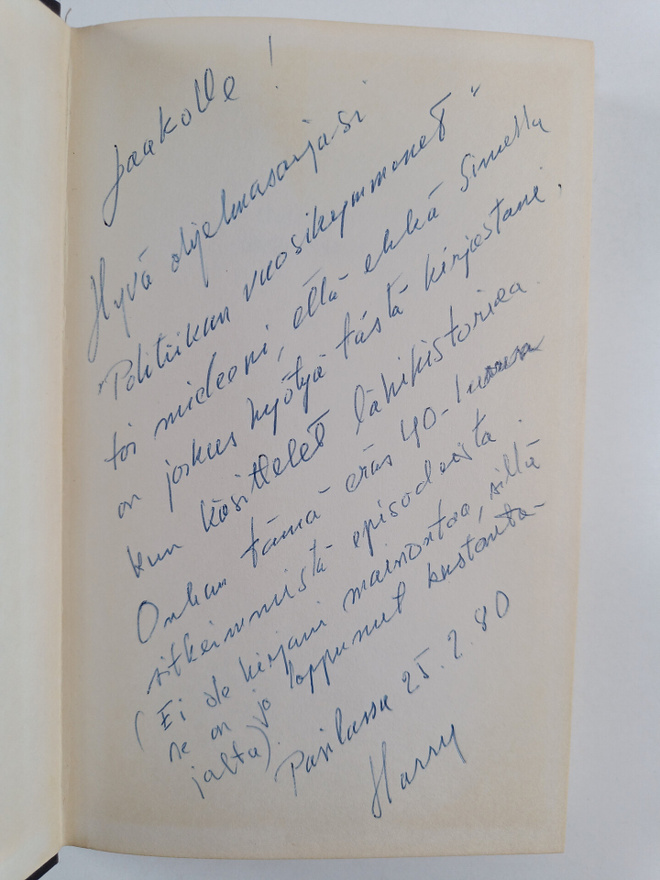 Jaakolle!
Hyvä ohjelmasarjasi
"Politiikan vuosikymmenet"
toi mieleeni, että ehkä Sinulla
on joskus hyötyä tästä kirjastani,
kun käsittelet lähihistoriaa.
Onhan tämä eräs 40-luvun
sitkeimmistä episodeista.
(Ei ole kirjani mainontaa, sillä
ne on jo loppunut kustanta-
jalta).
Pasilassa 25.2.80
Harry